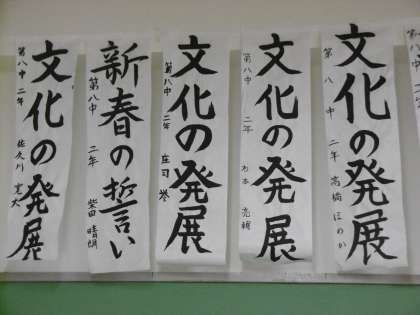 文化の発展
第八中 二年 高橋 ほのか
文化の発展
第八中 二年
文化の発展
第八中 二年 庄司 誉
新春の誓い
第八中 二年 柴田 晴朗
文化の発展
第八中 二年 佐久川 寛大